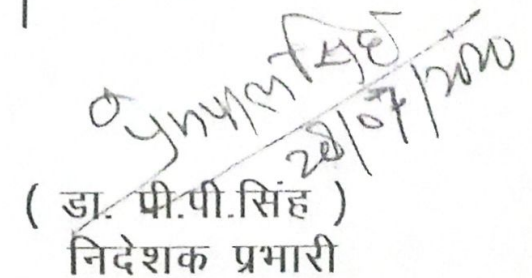 28/07/2020
( डा. पी.पी.सिंह )
निदेशक प्रभारी